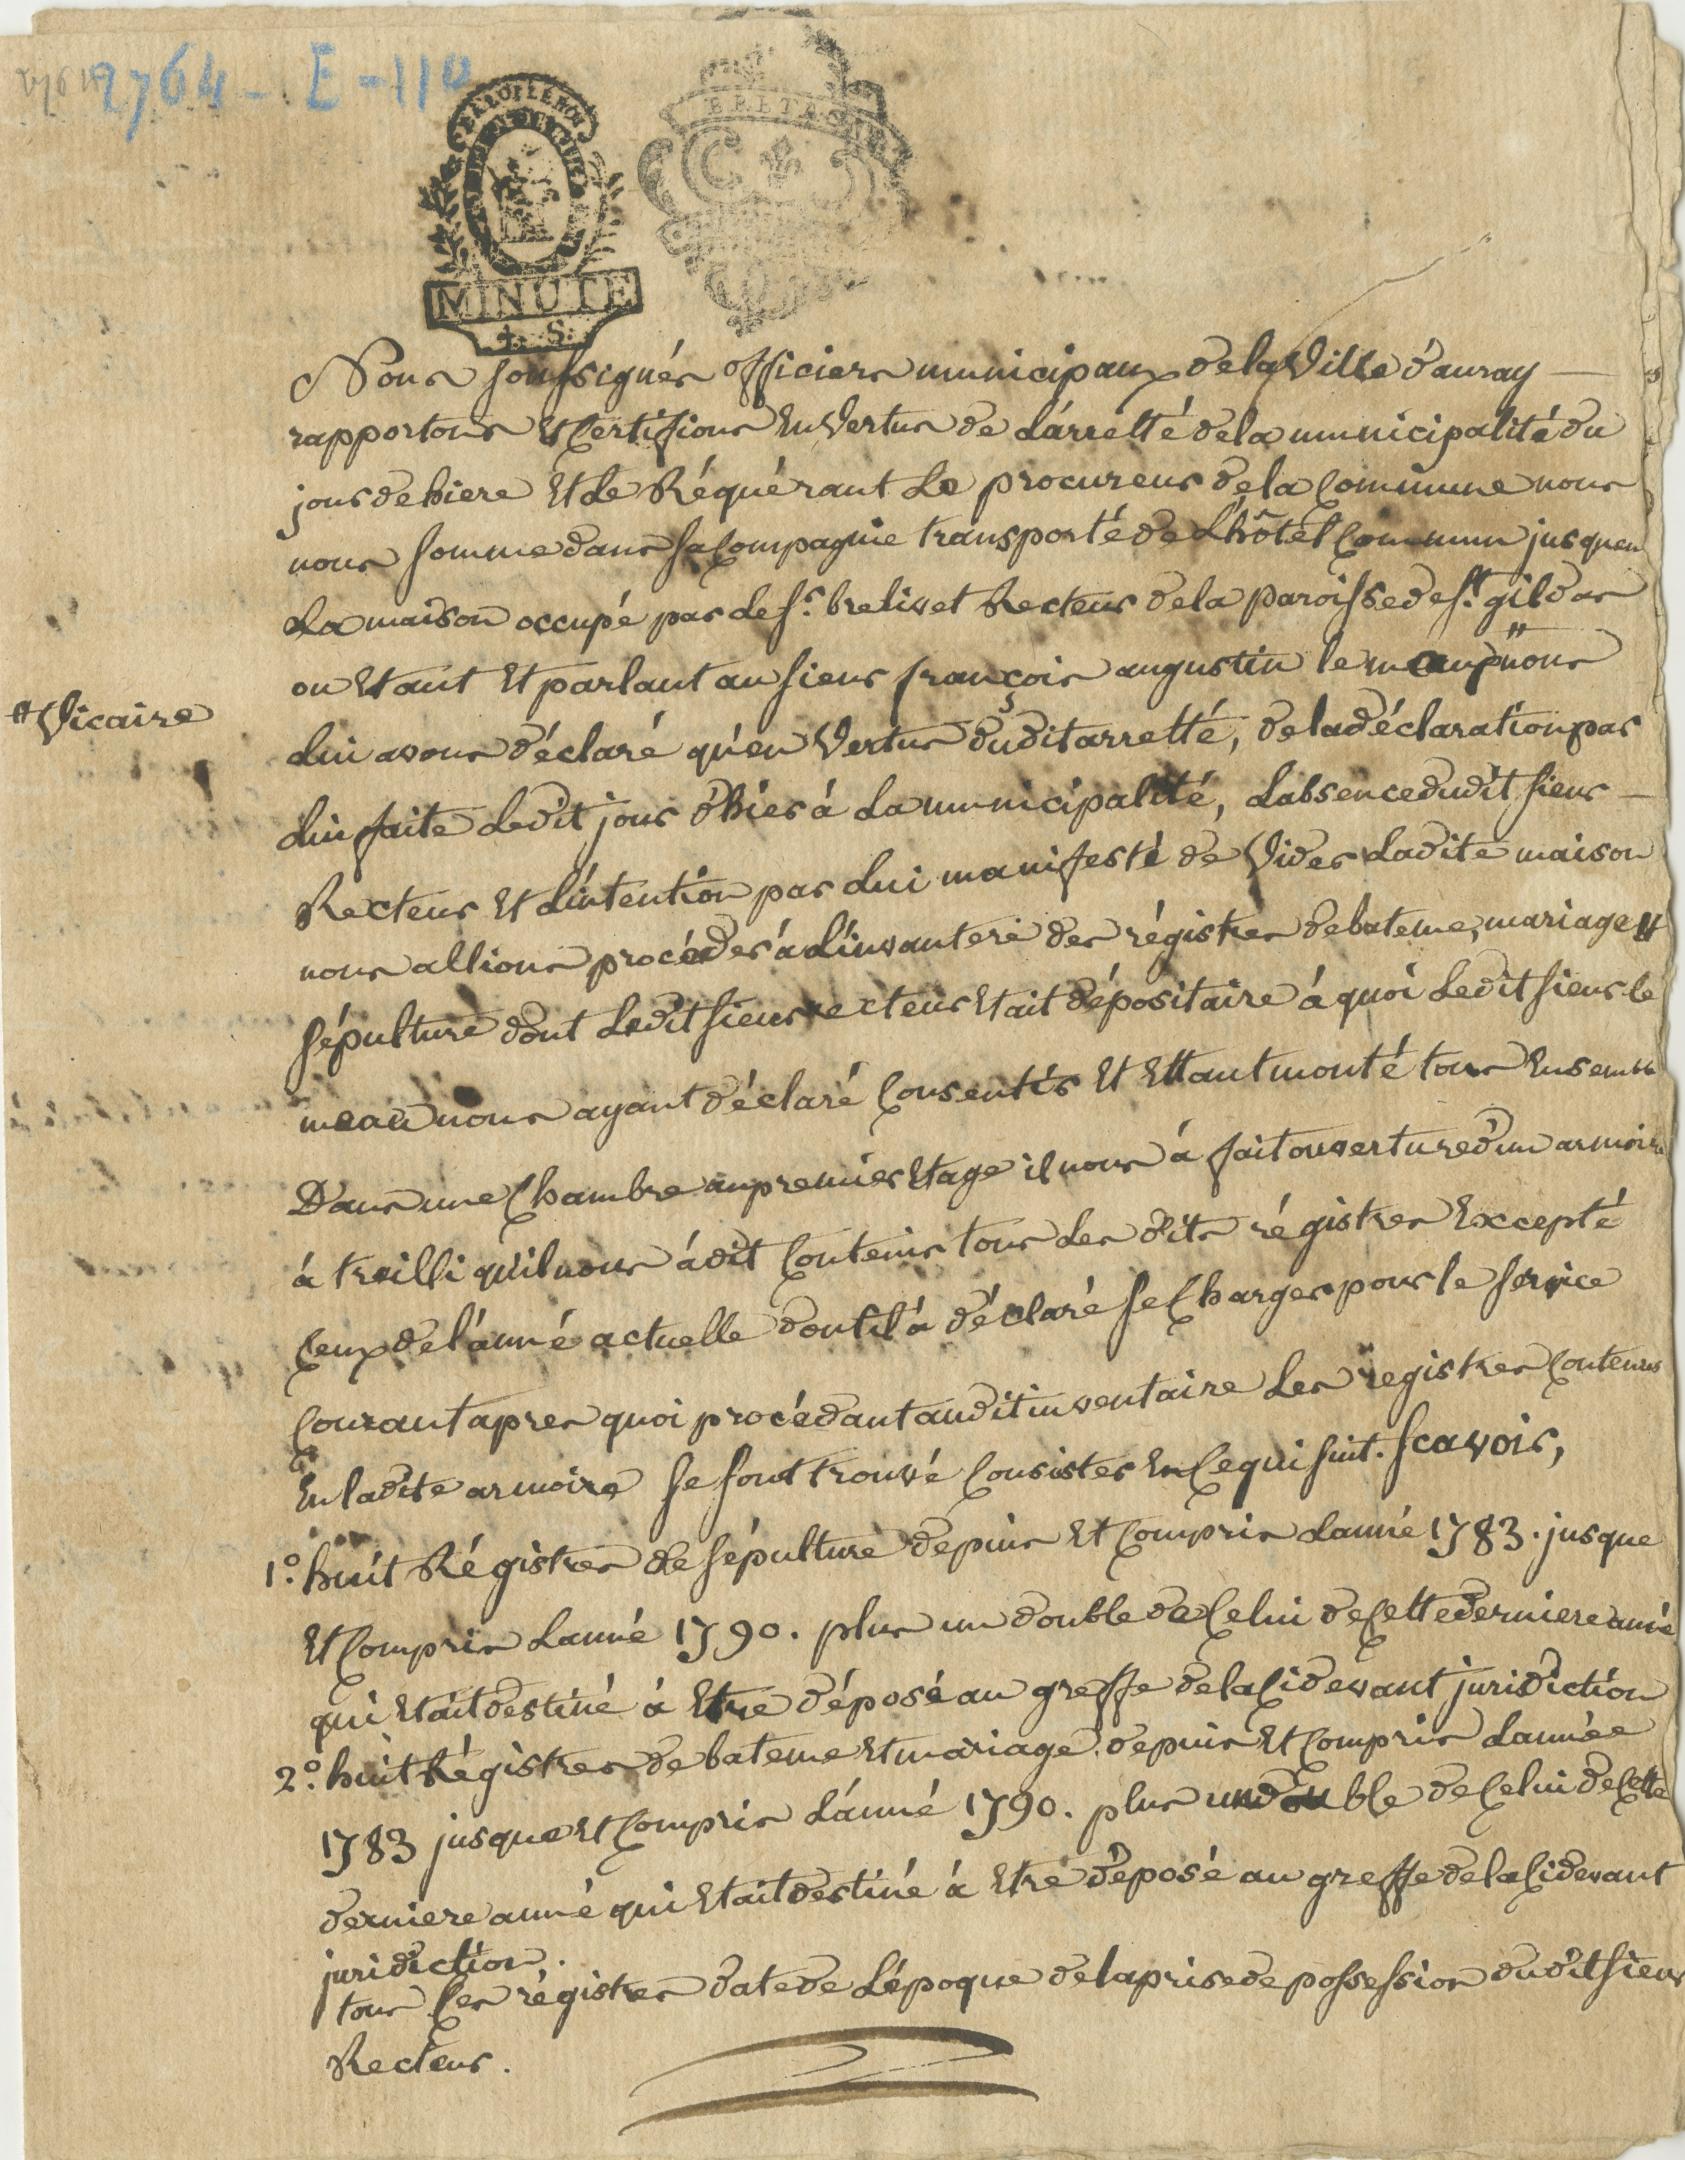 2764 - E - 110
LA LOI ET LE ROI
BRETAGNE
MINUTE
4. S.
Nous soussignés officiers municipaux de la Ville d'auray
rapportons et Certifions en Vertus de L'arretté de la municipalité du
jour de hiere et Le Réquérant Le procureur de la Commune nous
nous somme dans sa Compagnie transporté de L'hôtel Commun jusquen
La maison occupé par le Sr. brelivet Recteur de la paroisse de St. gildas
ou Etant Et parlant au sieur françois augustin le meau " nous
" Vicaire
Lui avons déclaré qu'en Vertus du dit arretté, de la déclaration par
Lui faite Ledit jour d'hier à La municipalité, Labsence du dit sieur
Recteur Et L'intention par Lui manifesté de Vider Ladite maison
nous allions procéder à L'invanteré des régistres de bateme, mariage et
sépulture dont Ledit sieur recteur Etait dépositaire à quoi Ledit sieur le
meau nous ayant déclaré Consentir Et Ettant monté tous Ensemble
Dans une Chambre au premier Etage il nous à fait ouverture d'un armoire
à treilli qu'il nous à dit Contenir tous les dits régistres Excepté
Ceux de l'anné actuelle dont il à déclaré se Charger pour le service
Courant apres quoi procédant audit inventaire Les registres Contenus
En la dite armoire se sont trouvé Consister En Ce qui suit. Scavoir,
1.° huit Régistres de sépulture depuis Et Compris Lanné 1783. jusque
Et Compris Lanné 1790. plus un double de Celui de Cette derniere anné
qui Etait destiné à Etre déposé au greffe de la Cidevant juridiction
2.° huit Régistres de bateme Et mariage. depuis Et Compris Lannée
1783 jusque Et Compris L'anné 1790. plus un double de Celui de Cette
derniere anné qui Etait destiné à Etre déposé au greffe de la Cidevant
juridiction.
tous Ces régistres date de L'époque de la prise de possession du dit sieur
Recteur.